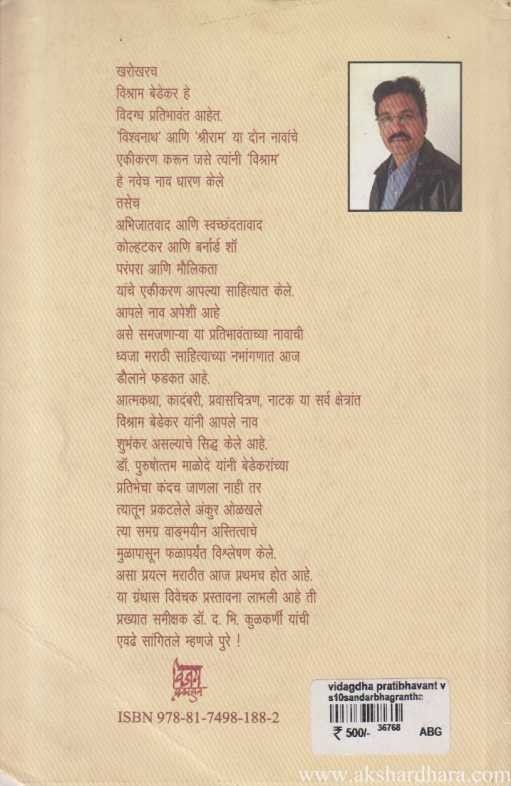 खरोखरच
विश्राम बेडेकर हे
विदग्ध प्रतिभावंत आहेत.
'विश्वनाथ' आणि 'श्रीराम' या दोन नावांचे
एकीकरण करून जसे त्यांनी 'विश्राम'
हे नवेच नाव धारण केले
तसेच
अभिजातवाद आणि स्वच्छंदतावाद
कोल्हटकर आणि बर्नार्ड शॉ
परंपरा आणि मौलिकता
यांचे एकीकरण आपल्या साहित्यात केले.
आपले नाव अपेशी आहे
असे समजणाऱ्या या प्रतिभावंताच्या नावाची
ध्वजा मराठी साहित्याच्या नभांगणात आज
डौलाने फडकत आहे.
आत्मकथा, कादंबरी, प्रवासचित्रण, नाटक या सर्व क्षेत्रांत
विश्राम बेडेकर यांनी आपले नाव
शुभंकर असल्याचे सिद्ध केले आहे.
डॉ. पुरुषोत्तम माळोदे यांनी बेडेकरांच्या
प्रतिभेचा कंदच जाणला नाही तर
त्यातून प्रकटलेले अंकुर ओळखले
त्या समग्र वाङ्मयीन अस्तित्वाचे
मुळापासून फळापर्यंत विश्लेषण केले.
असा प्रयत्न मराठीत आज प्रथमच होत आहे.
या ग्रंथास विवेचक प्रस्तावना लाभली आहे ती
प्रख्यात समीक्षक डॉ. द. भि. कुळकर्णी यांची
एवढे सांगितले म्हणजे पुरे !
विजय
प्रकाशन
ISBN 978-81-7498-188-2
vidagdha pratibhavant v
s10sandarbhagrantha
₹ 500/- 36768 ABG
www.akshardhara.com